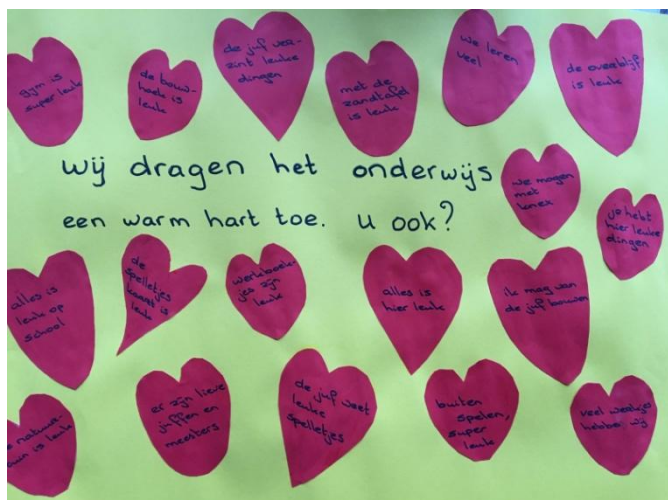 gym is
super leuk
de bouw-
hoek is
leuk
de juf ver-
zint leuke
dingen
met de
zandtafel
is leuk
we leren
veel
de overblijf
is leuk
wij dragen het onderwijs
een warm hart toe. u ook?
we mogen
met
knex
je hebt
hier leuke
dingen
alles is
leuk op
school
de
spelletjes
kast is
leuk
werkboek-
jes zijn
leuk
alles is
hier leuk
ik mag van
de juf bouwen
natuur-
is leuk
er zijn lieve
juffen en
meesters
de juf weet
leuke
spelletjes
buiten
spelen,
super
leuk
veel werkjes
hebben wij